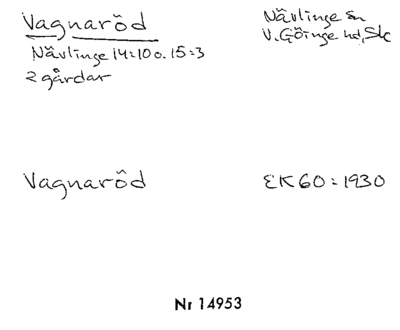 Vagnaröd
Nävlinge sn
V. Göinge hd, Sk
Nävlinge 14:10 o. 15:3
2 gårdar
Vagnaröd
EK 60:1930
Nr 14953